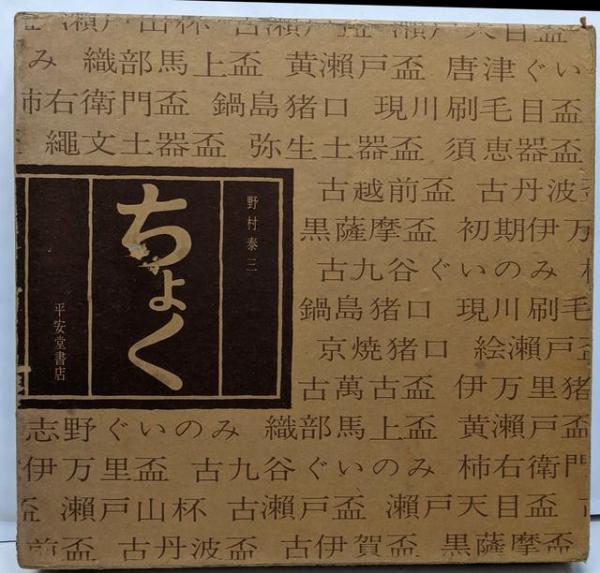 瀬戸山杯 古瀬戸盃 瀬戸天目盃
み 織部馬上盃 黄瀬戸盃 唐津ぐい
柿右衛門盃 鍋島猪口 現川刷毛目盃
繩文土器盃 弥生土器盃 須恵器盃
古越前盃 古丹波盃
黒薩摩盃 初期伊万
古九谷ぐいのみ 柿
鍋島猪口 現川刷毛
京焼猪口 絵瀬戸盃
古萬古盃 伊万里猪
野村泰三
ちょく
平安堂書店
志野ぐいのみ 織部馬上盃 黄瀬戸盃
伊万里盃 古九谷ぐいのみ 柿右衛門
盃 瀬戸山杯 古瀬戸盃 瀬戸天目盃 古
前盃 古丹波盃 古伊賀盃 黒薩摩盃